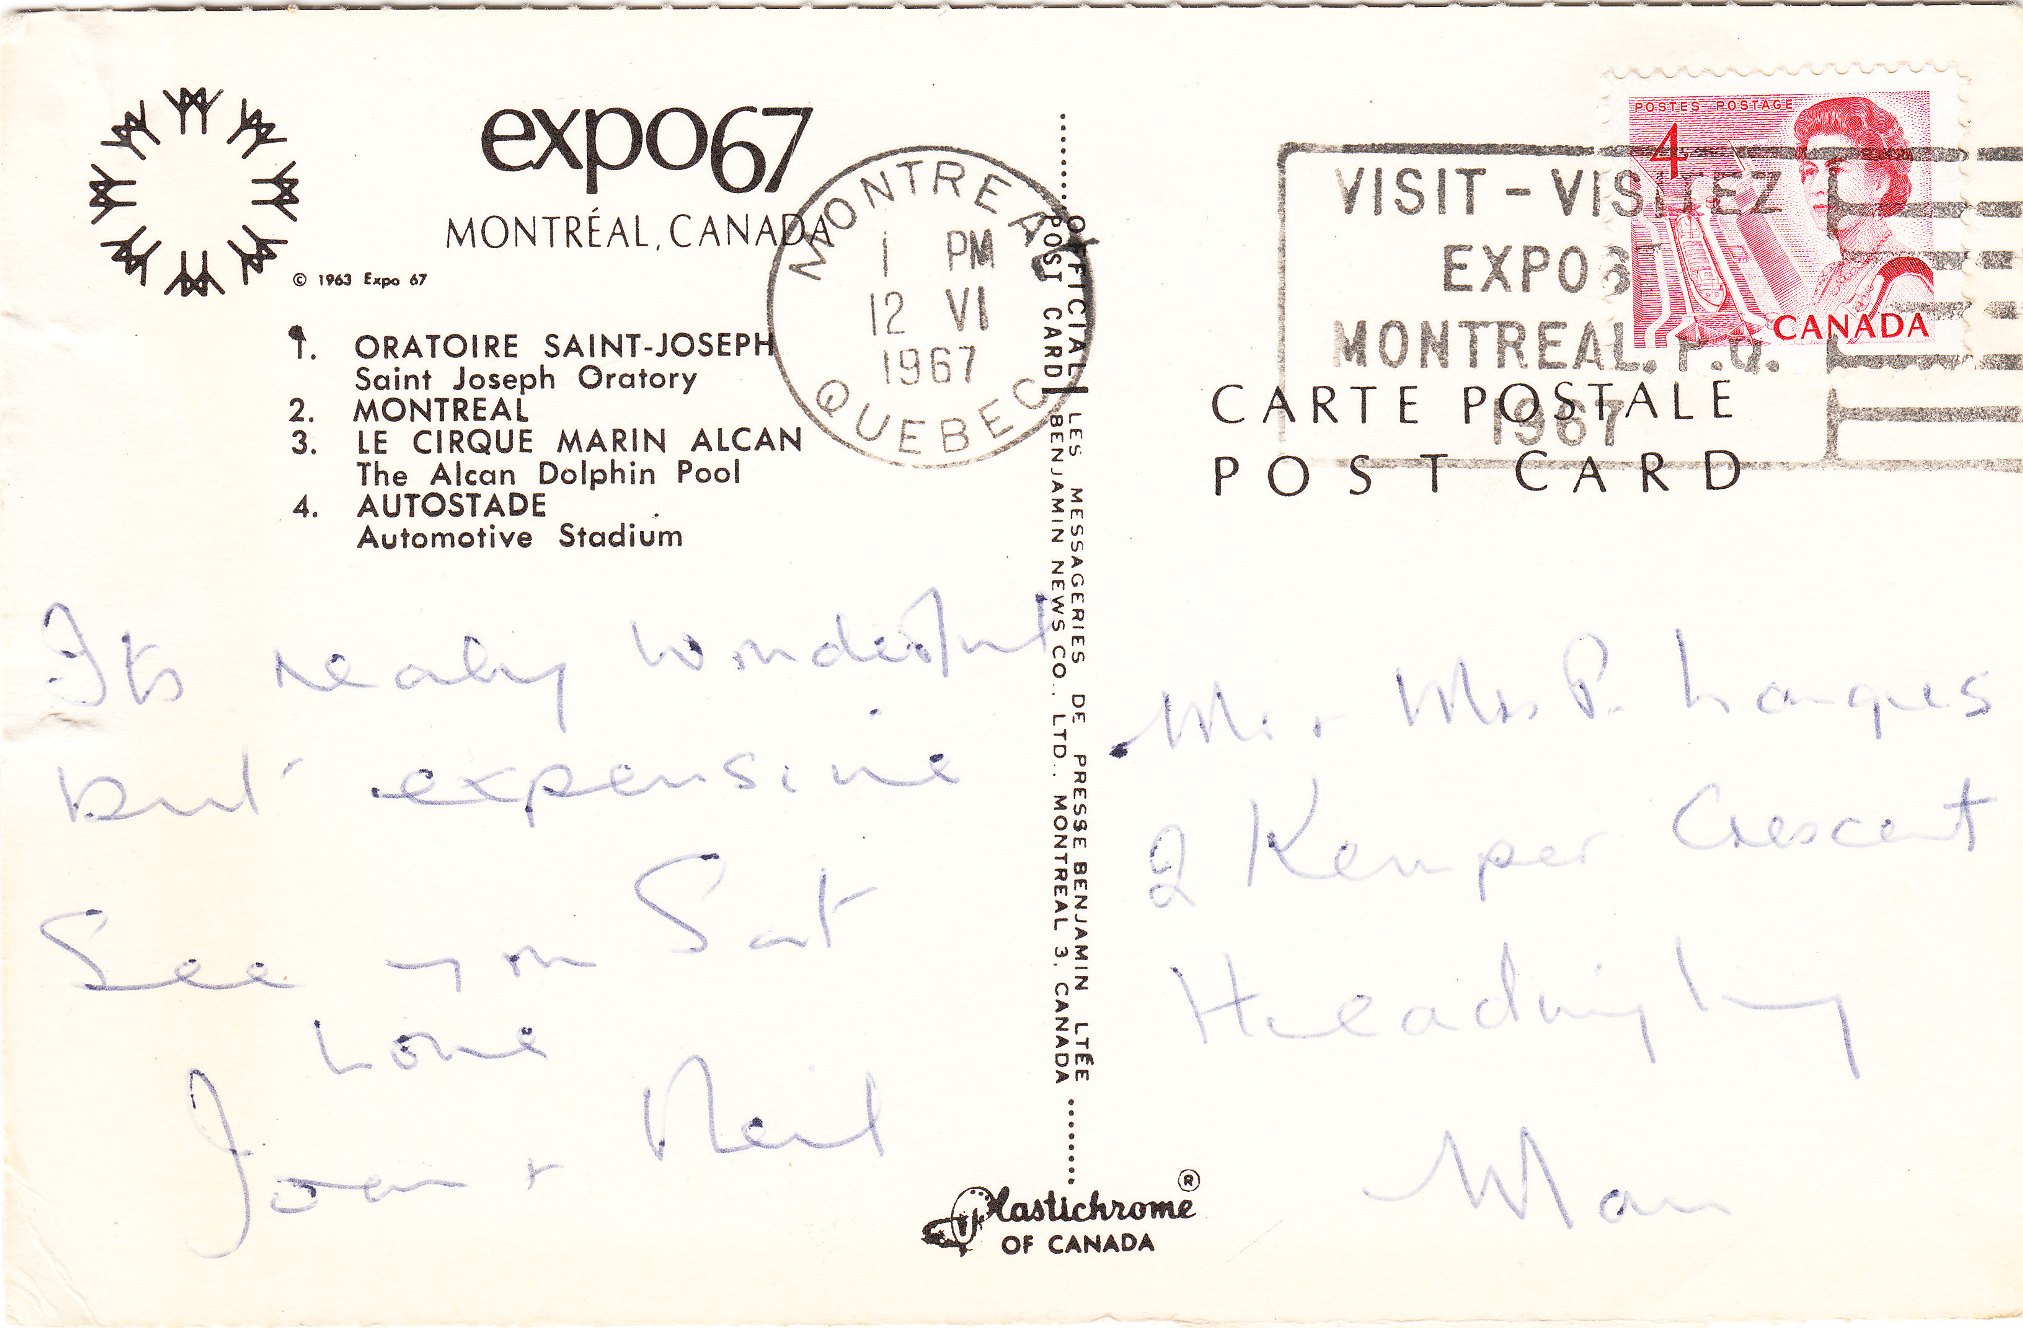 expo67
MONTRÉAL, CANADA
© 1963 Expo 67
1. ORATOIRE SAINT-JOSEPH
Saint Joseph Oratory
2. MONTREAL
3. LE CIRQUE MARIN ALCAN
The Alcan Dolphin Pool
4. AUTOSTADE
Automotive Stadium
MONTREAL
1 PM
12 VI
1967
QUEBEC
Its really wonderful
but expensive
See you Sat
Love
Joan + Neil
OFFICIAL POST CARD
LES MESSAGERIES DE PRESSE BENJAMIN LTÉE
BENJAMIN NEWS CO., LTD., MONTREAL 3, CANADA
Plastichrome ®
OF CANADA
VISIT - VISITEZ
EXPO 67
MONTREAL. P.Q.
1967
POSTES POSTAGE
4
CANADA
CARTE POSTALE
POST CARD
Mr. + Mrs P.
2 Kemper Crescent
Headingley
Man